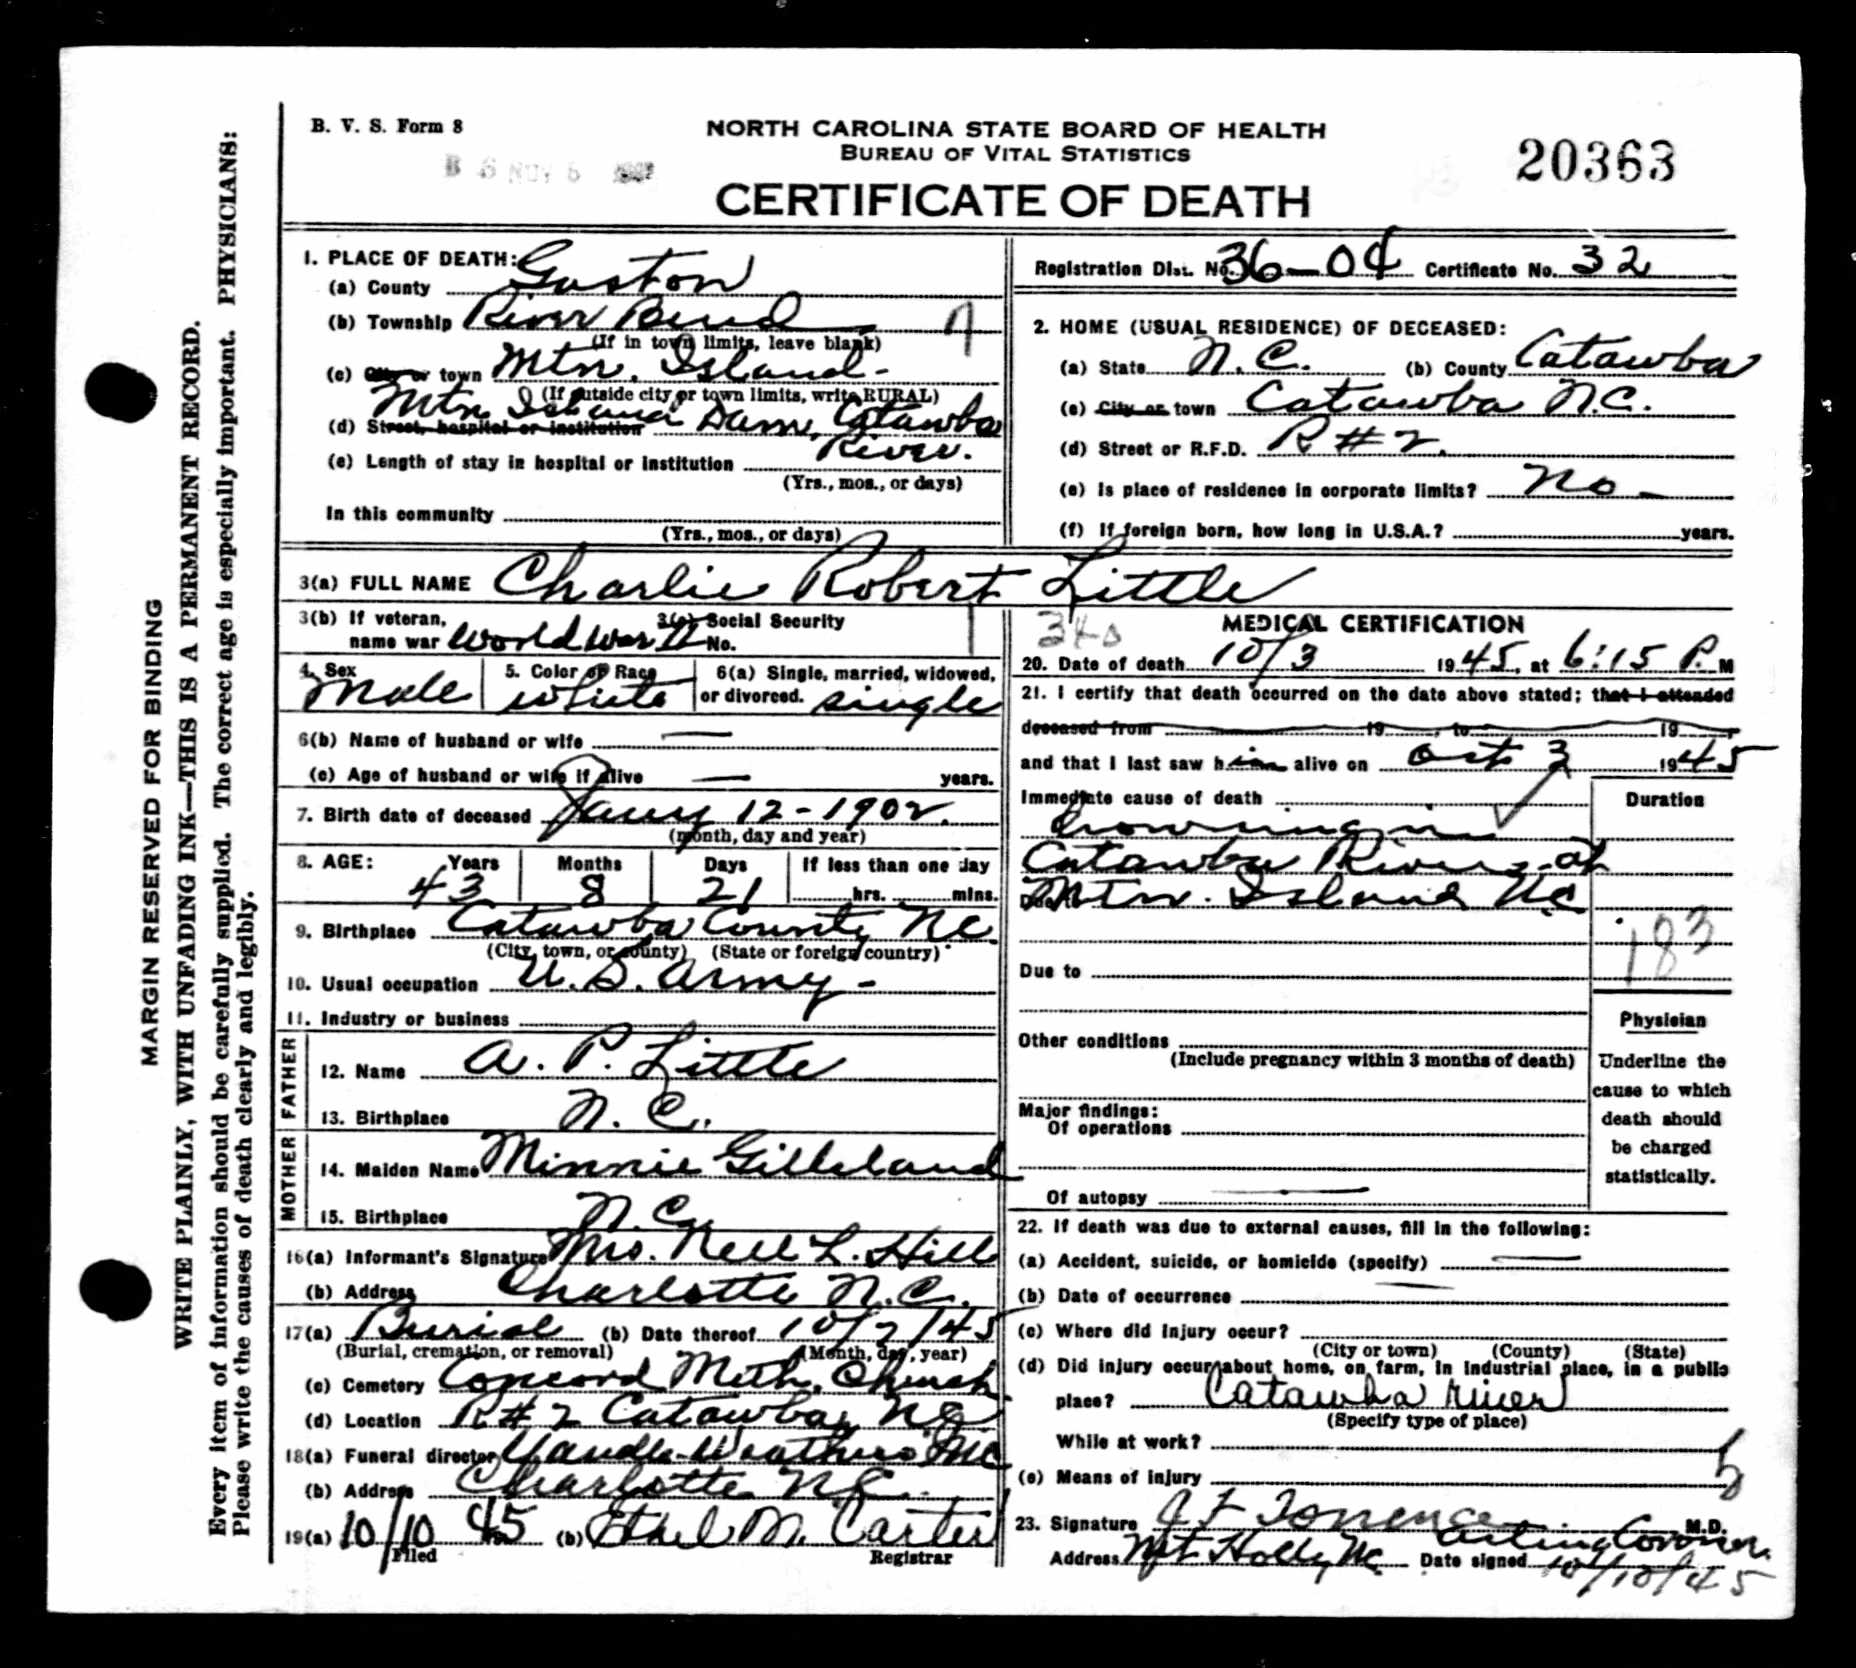 B. V. S. Form 8
NORTH CAROLINA STATE BOARD OF HEALTH
BUREAU OF VITAL STATISTICS
CERTIFICATE OF DEATH
20363
MARGIN RESERVED FOR BINDING
WRITE PLAINLY, WITH UNFADING INK—THIS IS A PERMANENT RECORD.
Every item of information should be carefully supplied. The correct age is especially important. PHYSICIANS:
Please write the causes of death clearly and legibly.
1. PLACE OF DEATH:
(a) County Gaston
(b) Township River Bend
(If in town limits, leave blank)
(c) City or town Mtn. Island
(If outside city or town limits, write RURAL)
(d) Street, hospital or institution Mtn Island Dam, Catawba
River.
(e) Length of stay in hospital or institution
(Yrs., mos., or days)
In this community
(Yrs., mos., or days)
Registration Dist. No. 36-04 Certificate No. 32
2. HOME (USUAL RESIDENCE) OF DECEASED:
(a) State N. C. (b) County Catawba
(c) City or town Catawba N.C.
(d) Street or R.F.D. R#2.
(e) Is place of residence in corporate limits? No
(f) If foreign born, how long in U.S.A.? years.
3(a) FULL NAME Charlie Robert Little
3(b) If veteran,
name war World War II
3(c) Social Security
No.
4. Sex Male
5. Color or Race White
6(a) Single, married, widowed,
or divorced. Single
6(b) Name of husband or wife —
(c) Age of husband or wife if alive — years.
7. Birth date of deceased Jany 12-1902.
(month, day and year)
8. AGE: Years 43 Months 8 Days 21 If less than one day
hrs. mins.
9. Birthplace Catawba County NC
(City, town, or county) (State or foreign country)
10. Usual occupation U. S. Army -
11. Industry or business
FATHER
12. Name A. P. Little
13. Birthplace N. C.
MOTHER
14. Maiden Name Minnie Gilleland
15. Birthplace N. C.
16(a) Informant's Signature Mrs. Nell L. Hill
(b) Address Charlotte N.C.
17(a) Burial (b) Date thereof 10/7/45
(Burial, cremation, or removal) (Month, day, year)
(c) Cemetery Concord Meth. Church
(d) Location R#2 Catawba, NC
18(a) Funeral director Inc
(b) Address Charlotte NC
19(a) 10/10 45 (b) Ethel M. Carter
Filed Registrar
MEDICAL CERTIFICATION
20. Date of death 10/3 1945, at 6:15 P. M
21. I certify that death occurred on the date above stated; that I attended
deceased from 19 , to 19
and that I last saw him alive on Oct 3 1945
Immediate cause of death
Drowning in
Catawba River at
Due to Mtn. Island NC
Duration
183
Due to
Other conditions
(Include pregnancy within 3 months of death)
Major findings:
Of operations
Of autopsy —
Physician
Underline the
cause to which
death should
be charged
statistically.
22. If death was due to external causes, fill in the following:
(a) Accident, suicide, or homicide (specify) —
(b) Date of occurrence —
(c) Where did injury occur?
(City or town) (County) (State)
(d) Did injury occur about home, on farm, in industrial place, in a public
place? Catawba River
(Specify type of place)
While at work?
(e) Means of injury
23. Signature J F Torrence M.D.
Acting Coroner
Address Mt Holly NC Date signed 10/10/45